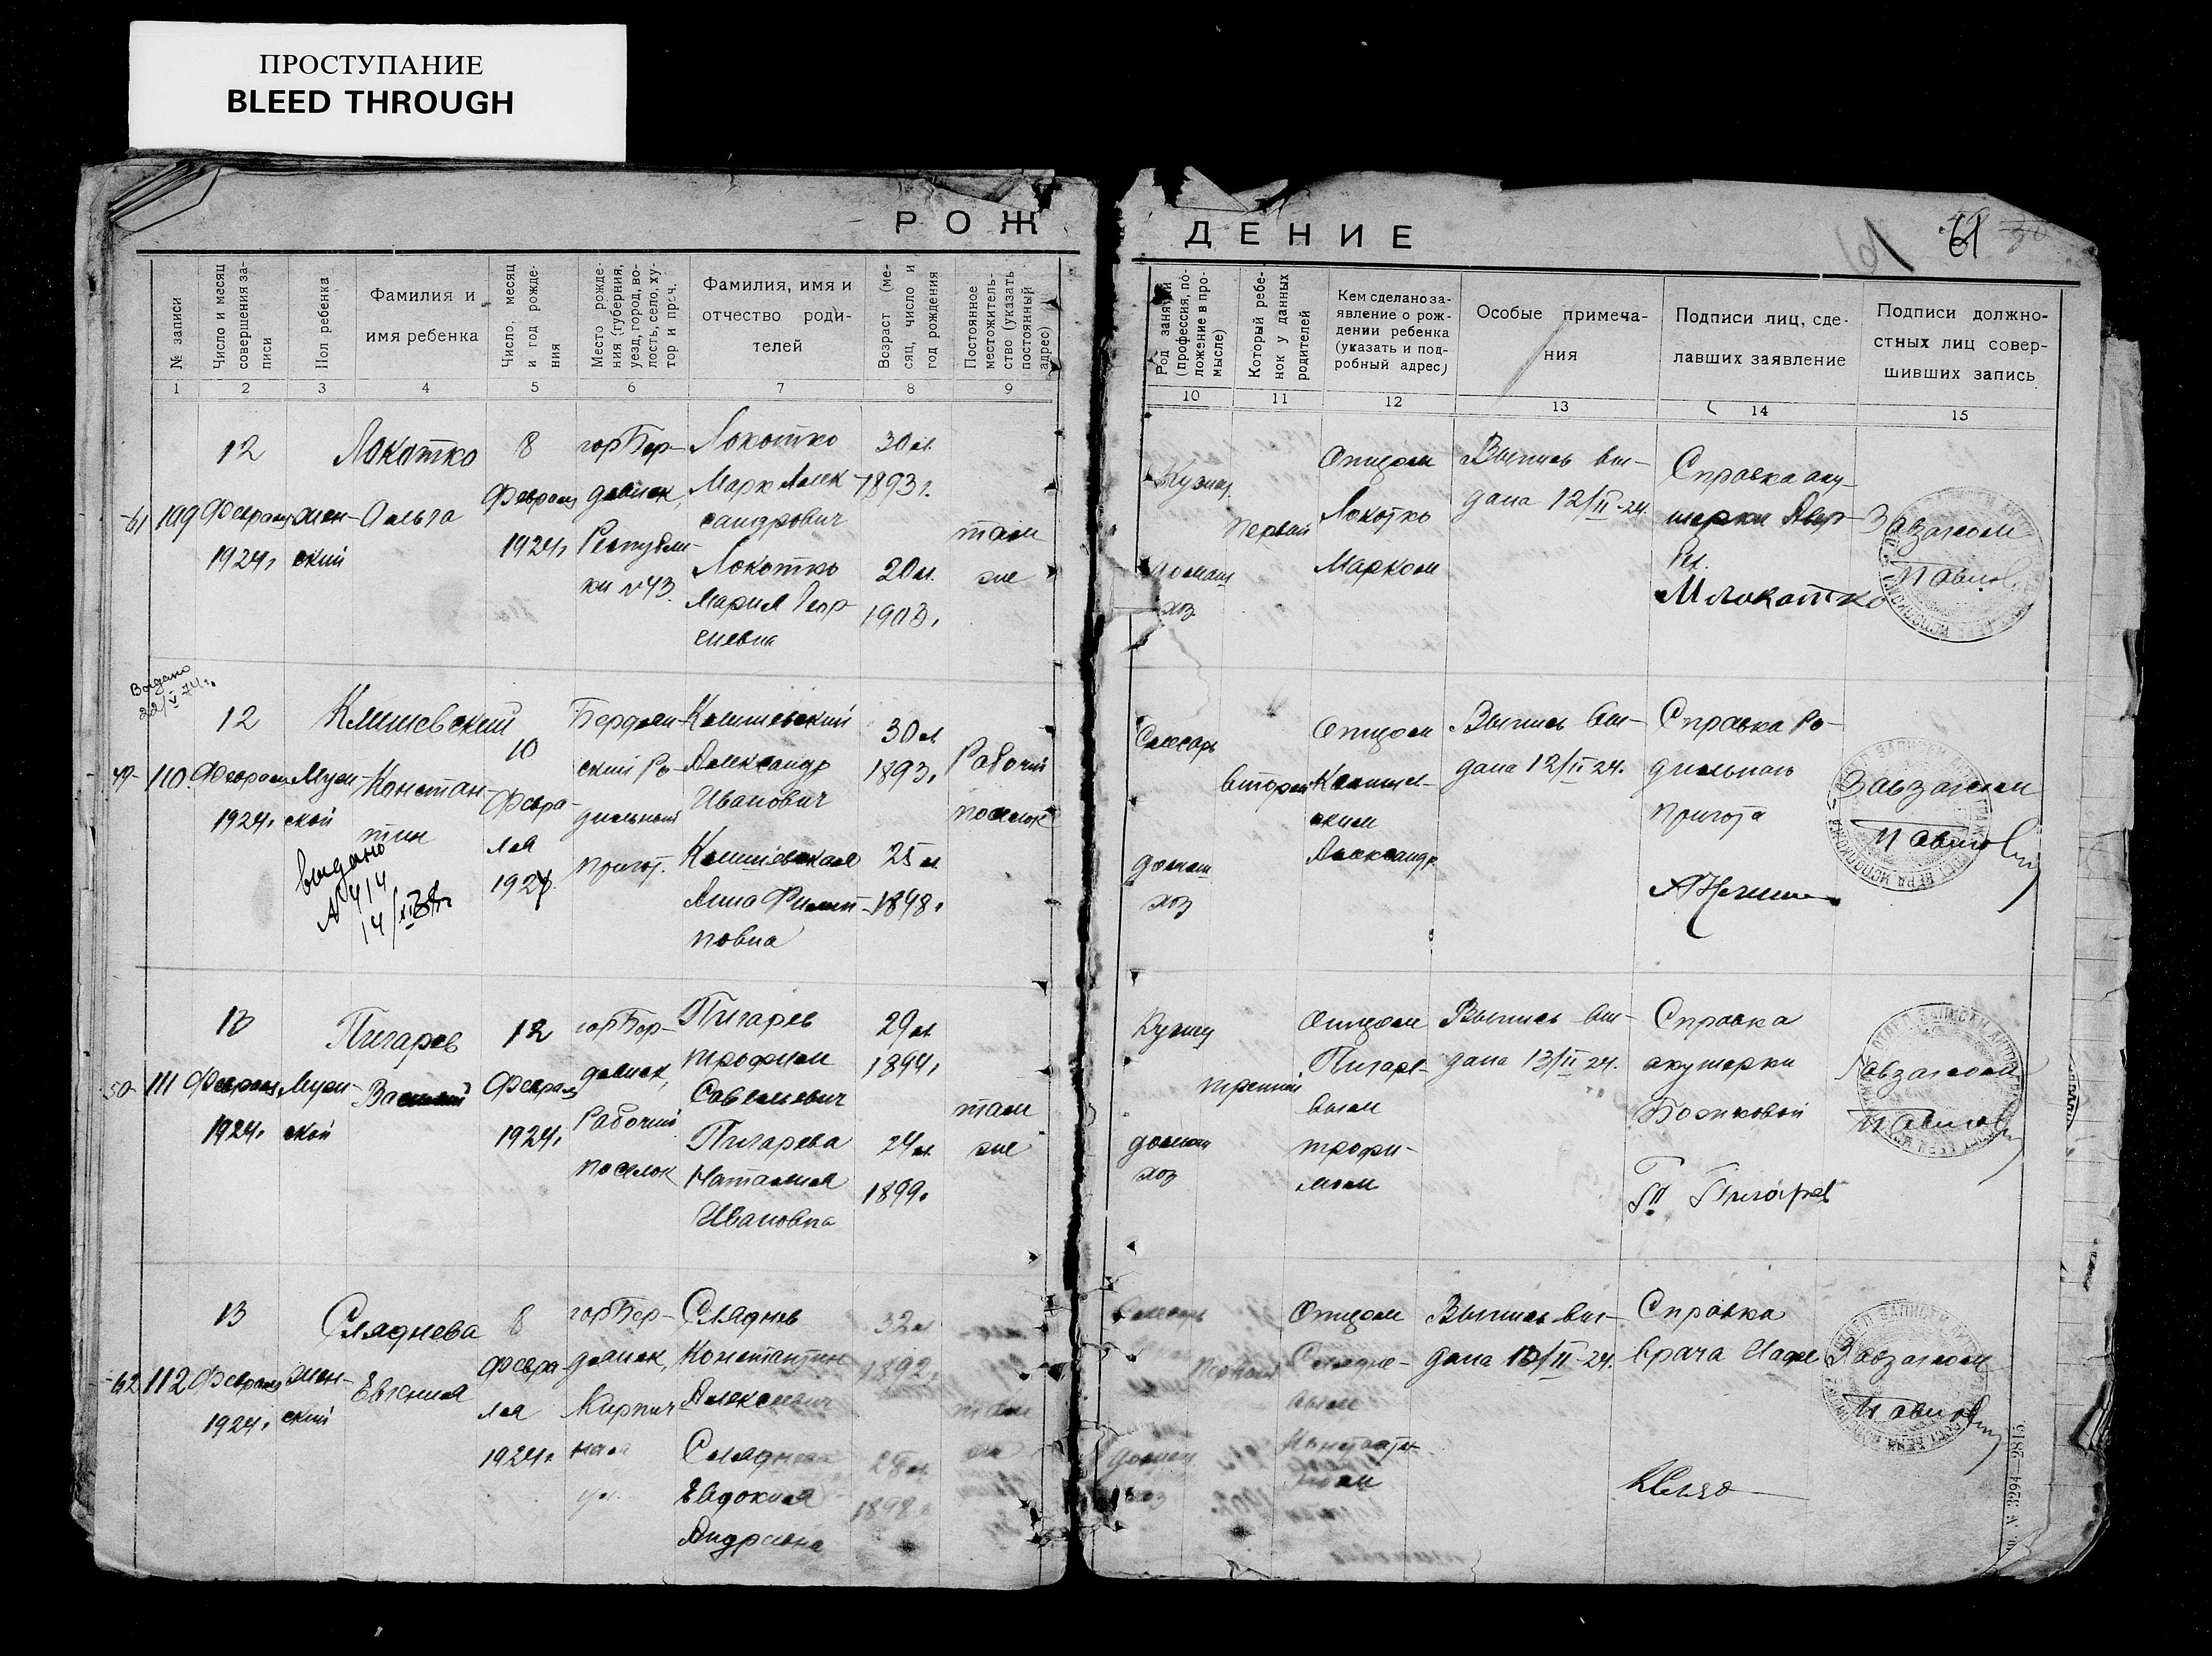 ПРОСТУПАНИЕ
BLEED THROUGH
РОЖ
ДЕНИЕ
61
61
№ записи
Число и месяц совершения записи
Пол ребенка
Фамилия и
имя ребенка
Число, месяц и год рождения
Место рождения (губерния, уезд, город, волость, село, хутор и проч.
Фамилия, имя и
отчество роди-
телей
Возраст (месяц, число и год рождения
Постоянное местожительство (указать постоянный адрес)
Род занятий (профессия, положение в промысле)
Который ребенок у данных родителей
Кем сделано за-
явление о рож-
дении ребенка
(указать и под-
робный адрес)
Особые примеча-
ния
Подписи лиц, сде-
лавших заявление
Подписи должно-
стных лиц совер-
шивших запись
1 2 3 4 5 6 7 8 9
10 11 12 13 14 15
61
109
12
Февраля
1924г
жен-
ский
Локотко
Ольга
8
Февраля
1924г
гор Бер-
дянск,
Республи-
ки №43
Локотко
Марк Алек-
сандрович
Локотко
Мария Геор-
гиевна
30 л.
1893г.
20 л.
1903г
там
же
Кузнец
домаш
хоз
первый
Отцом
Локотко
Марком
Выпись вы-
дана 12/II-24.
Справка аку-
шерки
М Локотко
Завзагсом
Выдано
22/V 74г.
49
110.
12
Февраля
1924г
Муж-
ской
Клишевский
Констан-
тин
выдано
№414
10
Февра-
ля
1924.
Бердян-
ский Ро-
дильный
приют.
Клишевский
Александр
Иванович
Клишевская
Анна Филип-
повна
30 л
1893г
25 л
1898г
Рабочий
поселок
Слесарь
домаш
хоз
второй
Отцом
Клишев-
ским
Александр.
Выпись вы-
дана 12/II 24.
Справка Ро-
дильного
приюта
Завзагсом
50
111
13
Февраля
1924г
Муж-
ской
Пигарев
Василий
12
Февраля
1924г
гор Бер-
дянск,
Рабочий
поселок
Пигарев
Трофим
Савельевич
Пигарева
Наталия
Ивановна
29 л
1894г
24 л
1899г
там
же
Кузнец
домаш
хоз
третий
Отцом
Пигаре-
вым
Трофи-
мом
Выпись вы-
дана 13/II 24.
Справка
акушерки
Божковой
Пигарев
Завзагсом
62
112
13
Февраля
1924г
жен-
ский
Сляднева
Евгения
8
Февра-
ля
1924г
гор Бер-
дянск,
Кирпич
ная
ул.
Сляднев
Константин
Алексеевич
Сляднева
Евдокия
Андреевна
32 л
1892г
25 л
1898г
там
же
Слесарь
домаш
хоз
первый
Отцом
Слядне-
вым
Константи-
ном
Выпись вы-
дана 13/II-24.
Справка
врача
Завзагсом